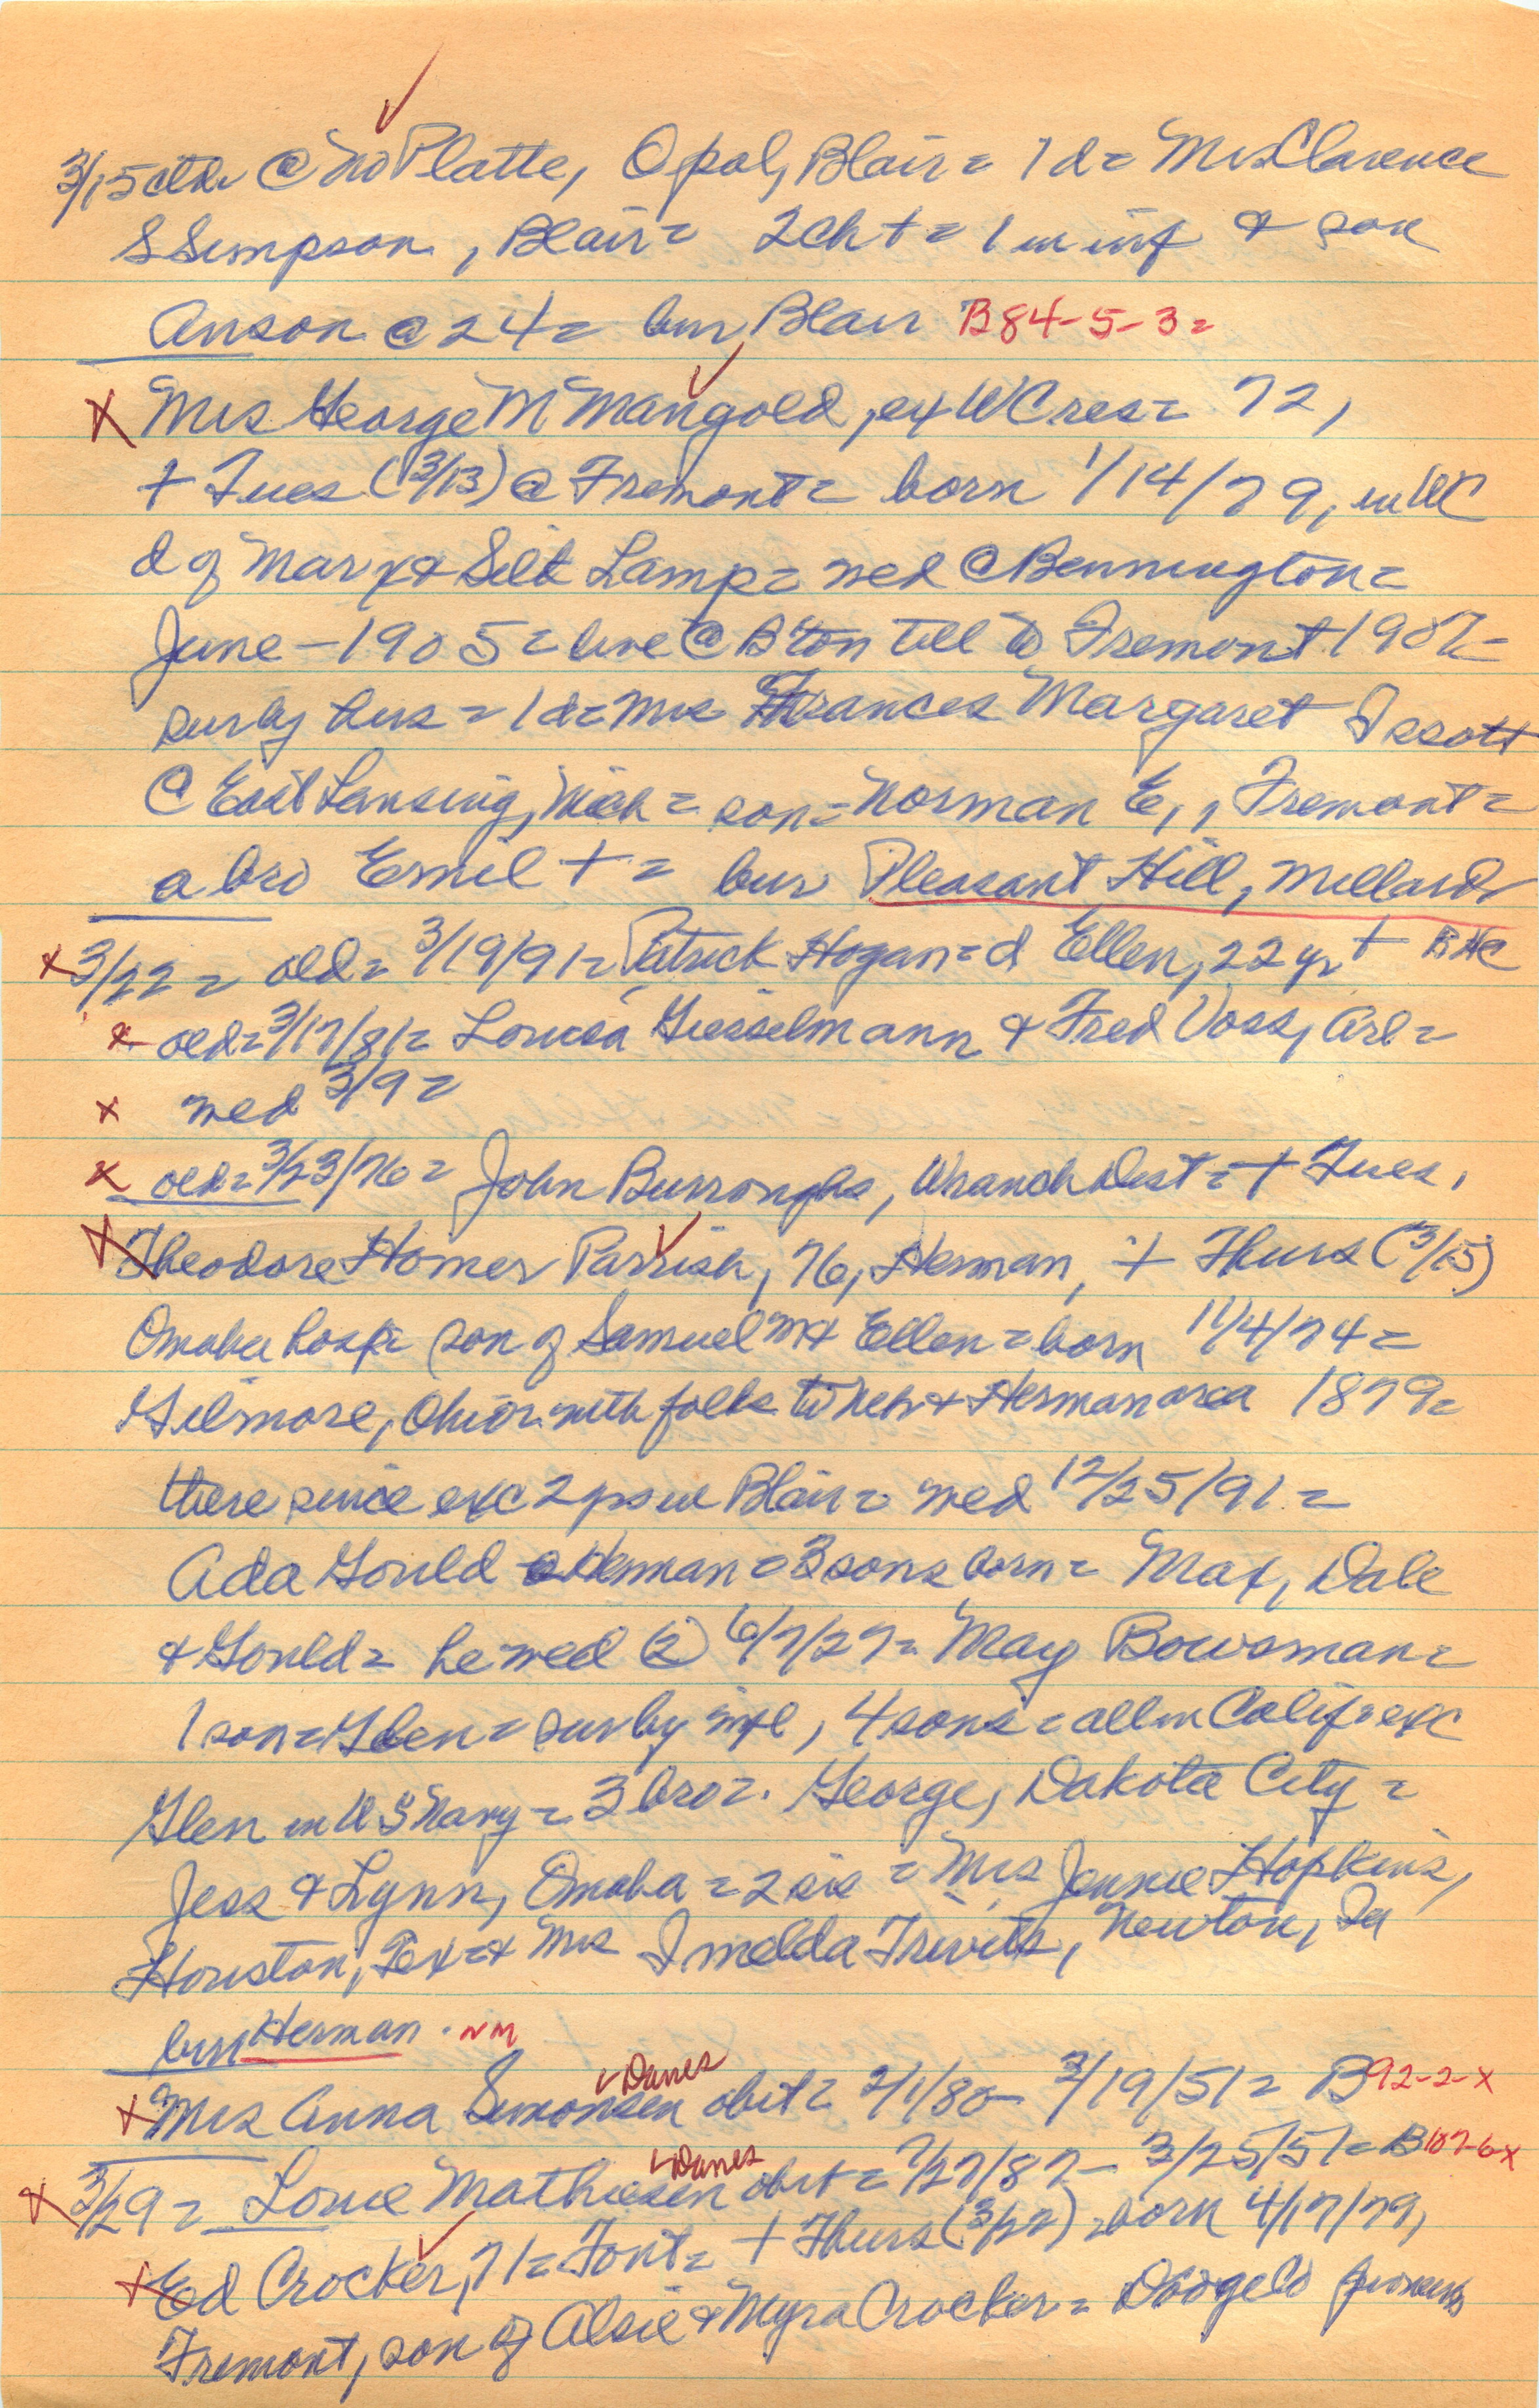 3/15 ctd. @ No Platte, Opal, Blair = 1 d = Mrs Clarence
S Simpson, Blair = 2 ch + = 1 in inf & son
Anson @ 24 = bur Blair B84-5-3 =
x Mrs George M Mangold, ex WC res = 72,
+ Tues (3/13) @ Fremont = born 1/14/79, in WC
d of Mary & Lamp = wed @ Bennington =
June - 1905 = live @ B'ton till to Fremont 1907 =
sur by hus = 1 d = Mrs Frances Margaret
@ East Lansing, Mich = son = Norman E,, Fremont =
a bro Emil + = bur Pleasant Hill, Millard
x 3/22 = old = 3/19/91 = Patrick Hogan = d Ellen, 22 yr +
x old = 3/17/81 = Louisa Giesselmann & Fred Voss, Arl =
x wed 3/9 =
x old = 3/23/76 = John Burroughs, Dist = + Tues,
x Theodore Homer Parrish, 76, Herman, + Thurs (3/15)
Omaha hosp = son of Samuel M & Ellen = born 11/4/74 =
Gilmore, Ohio = with folks to Neb & Herman area 1879 =
there since exc 2 yrs in Blair = wed 12/25/91 =
Ada Gould @ Herman = 3 sons born = Max, Dale
& Gould = he wed (2) 6/7/27 = May Bowsman =
1 son = Glen = sur by wife, 4 sons = all in Calif exc
Glen in U S Navy = 3 bro = George, Dakota City =
Jess & Lynn, Omaha = 2 sis = Mrs Jennie Hopkins,
Houston, Tex = & Mrs Imelda Trivits, Newton, Ia
bur Herman. NM
Danes
x Mrs Anna Simonsen obit = 2/1/80 - 3/19/51 = B92-2-x
Danes
x 3/29 = Louie Mathiesen obit = 7/27/87 - 3/25/51 = B107-6-x
x Ed Crocker, 71 = Font = + Thurs (3/22) = born 4/17/79,
Fremont, son of Alsie & Myra Crocker =